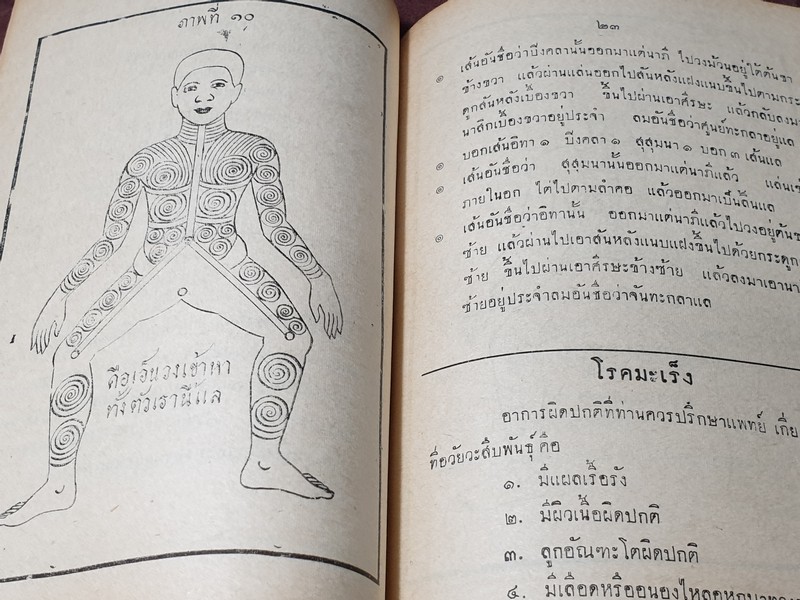 ภาพที่ ๑๐
คือเอ็นวงเข้าหา
ทั้งตัวเรานี้แล
๒๓
๏ เส้นอันชื่อว่าปิงคลานั้นออกมาแต่นาภี ไปวงม้วนอยู่ใต้ต้นขา
ข้างขวา แล้วผ่านแล่นออกไปสันหลังแฝงแนบขึ้นไปตามกระ
ดูกสันหลังเบื้องขวา ขึ้นไปผ่านเอาศีรษะ แล้วกลับลงมา
นาสิกเบื้องขวาอยู่ประจำ ลมอันชื่อว่าศูนย์ทะกลาอยู่แล
๏ บอกเส้นอิทา ๑ ปิงคลา ๑ สุสุมนา ๑ บอก ๓ เส้นแล
๏ เส้นอันชื่อว่า สุสุมนานั้นออกมาแต่นาภีแล้ว แล่นเข้
ภายในอก ไต่ไปตามลำคอ แล้วออกมาเป็นลิ้นแล
๏ เส้นอันชื่อว่าอิทานั้น ออกมาแต่นาภีแล้วไปวงอยู่ต้นข
ซ้าย แล้วผ่านไปเอาสันหลังแนบแฝงขึ้นไปด้วยกระดูก
ซ้าย ขึ้นไปผ่านเอาศีรษะข้างซ้าย แล้วลงมาเอานา
ซ้ายอยู่ประจำลมอันชื่อว่าจันทะกลาแล
โรคมะเร็ง
อาการผิดปกติที่ท่านควรปรึกษาแพทย์ เกี่ย
ที่อวัยวะสืบพันธุ์ คือ
๑. มีแผลเรื้อรัง
๒. มีผิวเนื้อผิดปกติ
๓. ลูกอัณฑะโตผิดปกติ
๔. มีเลือดหรือหนองไหลออกมาทาง